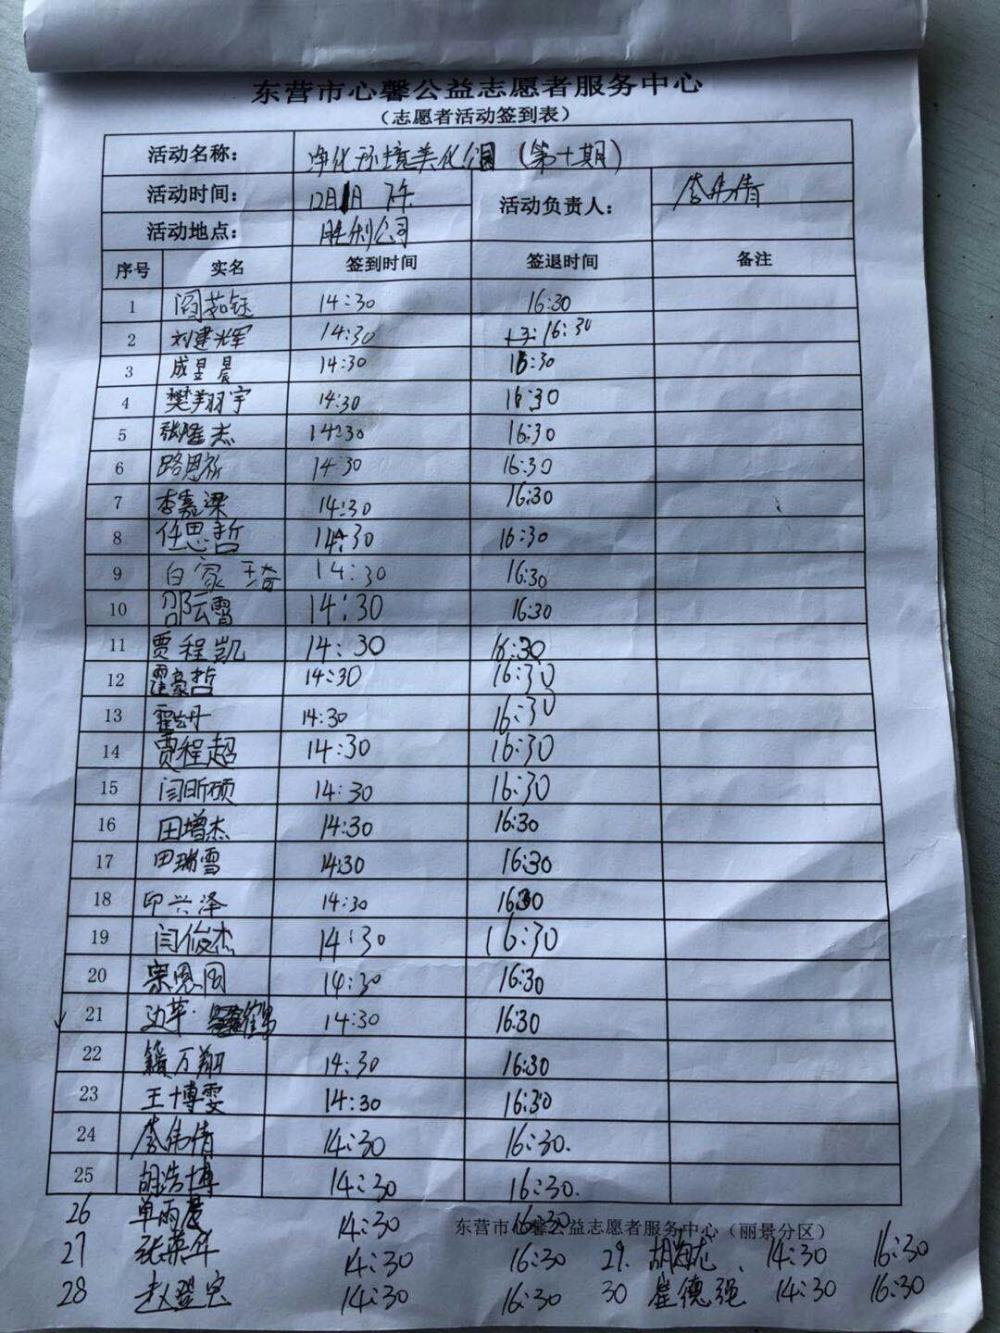 东营市心馨公益志愿者服务中心
(志愿者活动签到表)
活动名称: 净化环境美化公园 (第十期)
活动时间: 12月1日 下午 活动负责人: 李伟倩
活动地点: 胜利公园
序号 实名 签到时间 签退时间 备注
1 阎茹钰 14:30 16:30
2 刘建光军 14:30 16:30
3 成昱晨 14:30 16:30
4 樊翔宇 14:30 16:30
5 张隆杰 14:30 16:30
6 路恩祈 14:30 16:30
7 李嘉梁 14:30 16:30
8 任思哲 14:30 16:30
9 白家琦 14:30 16:30
10 邵云霄 14:30 16:30
11 贾程凯 14:30 16:30
12 霍豪哲 14:30 16:30
13 14:30 16:30
14 贾程超 14:30 16:30
15 闫昕硕 14:30 16:30
16 田增杰 14:30 16:30
17 田瑞雪 14:30 16:30
18 印兴泽 14:30 16:30
19 闫俊杰 14:30 16:30
20 14:30 16:30
21 14:30 16:30
22 籍万翔 14:30 16:30
23 王博雯 14:30 16:30
24 李伟倩 14:30 16:30.
25 胡浩博 14:30 16:30.
26 单雨晨 14:30 16:30
东营市心馨公益志愿者服务中心(丽景分区)
27 张英华 14:30 16:30 29. 胡海龙、 14:30 16:30
28 14:30 16:30 30 崔德强 14:30 16:30